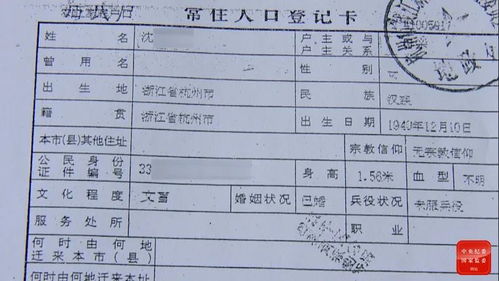 常住人口登记卡
姓 名 沈 户主或与户主关系
曾用名 性别
出生地 浙江省杭州市 民族 汉族
籍贯 浙江省杭州市 出生日期 1940年12月10日
本市(县)其他住址 宗教信仰 无宗教信仰
公民身份证件编号 33 身高 1.56米 血型 不明
文化程度 文盲 婚姻状况 已婚 兵役状况 未服兵役
服务处所 职业
何时由何地迁来本市(县)
何时由何地迁来本址
中央纪委
国家监委